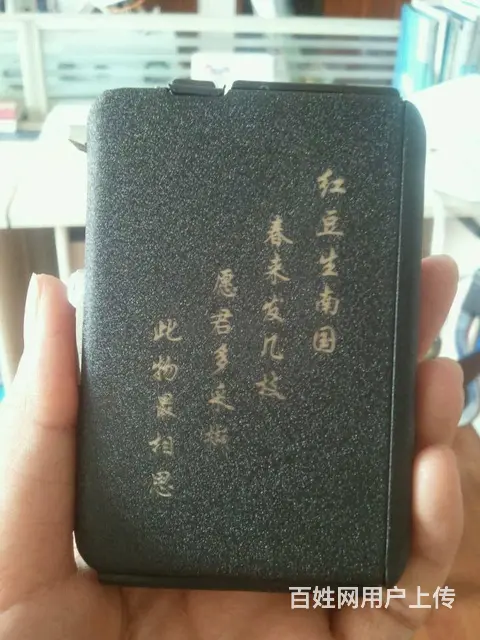 红豆生南国
春来发几枝
愿君多采撷
此物最相思
百姓网用户上传